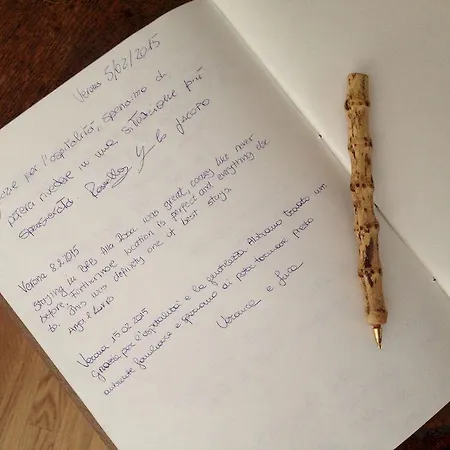 Verona 5/02/2015
per l'ospitalità, speriamo di
potervi rivedere in una situazione più
spensierata
Verona 8.2.2015
Staying in B&B Alla Rosa was great, comfy like never
before. Furthermore location is perfect and everything else
to. This was definitely one of best stays
Anja &
Verona 15.02.2015
Grazie per l'ospitalità e la gentilezza. Abbiamo trovato un
ambiente familiare e speriamo di poter tornare presto
e Luca